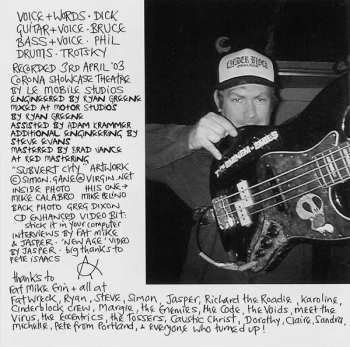 VOICE + WORDS · DICK
GUITAR + VOICE · BRUCE
BASS + VOICE · PHIL
DRUMS · TROTSKY
RECORDED 3RD APRIL '03
CORONA SHOWCASE THEATRE
BY LE MOBILE STUDIOS
ENGINEERED BY RYAN GREENE
MIXED AT MOTOR STUDIOS
BY RYAN GREENE
ASSISTED BY ADAM KRAMMER
ADDITIONAL ENGINEERING BY
STEVE EVANS
MASTERED BY BRAD VANCE
AT RED MASTERING
"SUBVERT CITY" ARTWORK
© SIMON.GANE@VIRGIN.NET
INSIDE PHOTO THIS ONE →
MIKE CALABRO MIKE BELINO
BACK PHOTO GREG DIXON
CD ENHANCED VIDEO BIT:
stick it in your computer
INTERVIEWS BY FAT MIKE
& JASPER · 'NEW AGE' VIDEO
BY JASPER · big thanks to
PETE ISAACS
thanks to
Fat Mike, Erin + all at
Fat Wreck, Ryan, Steve, Simon, Jasper, Richard the Roadie, Karoline,
Cinderblock crew, Margie, the Enemies, the Code, the Voids, meet the
Virus, the Eccentrics, the Tossers, Caustic Christ, Dorothy, Claire, Sandra,
Michelle, Pete from Portland, + everyone who turned up!